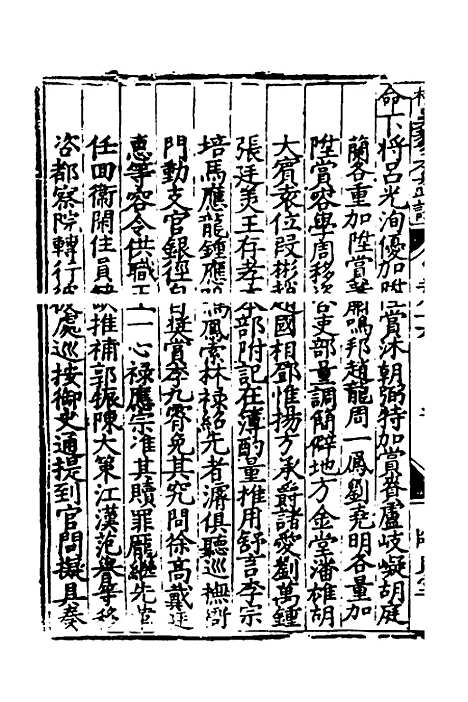 命下將呂光洵優加陞賞沐朝弼特加賞賚盧岐嶷胡庭
蘭各重加陞賞蕭鳴邦趙龍周一儁劉堯明各量加
陞賞容學周移咨吏部量調簡僻地方金堂潘雄胡
大賓袁位段彬趙國相鄧惟揚方承爵諸愛劉萬鍾
張廷美王存孝本部附記在簿酌量推用舒言李宗
培馬應龍鍾應馮鳳索林祿紹先者濬俱聽巡撫衙
門動支官銀徑自獎賞李九霄免其究問徐高戴廷
惠等容令供職一心祿應宗准其贖罪龐繼先革
任回衛閑住員缺推補郭振陳大策江漢范等移
咨都察院轉行彼處巡按御史通提到官問擬具奏